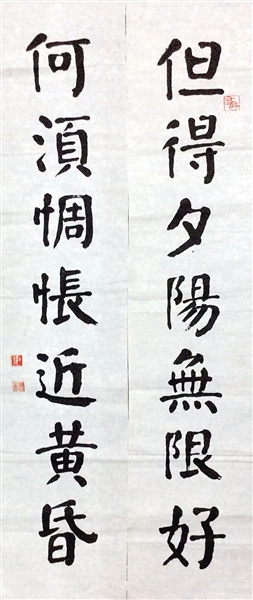 但得夕陽無限好
何須惆悵近黄昏